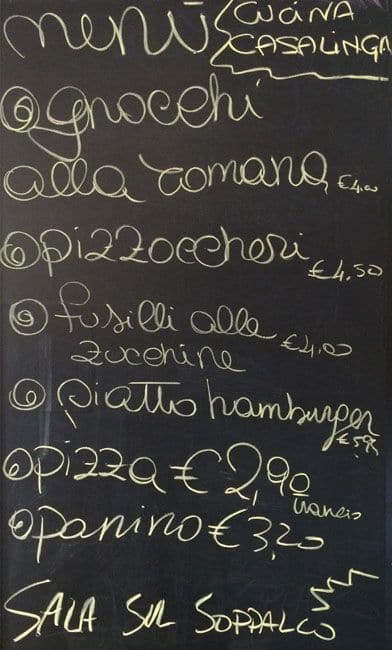 menù
CUCINA
CASALINGA
gnocchi
alla romana €4,00
pizzoccheri
€4,50
fusilli alle
zucchine €4,00
piatto hamburger
pizza €2,90
trancio
panino €3,20
SALA SUL SOPPALCO